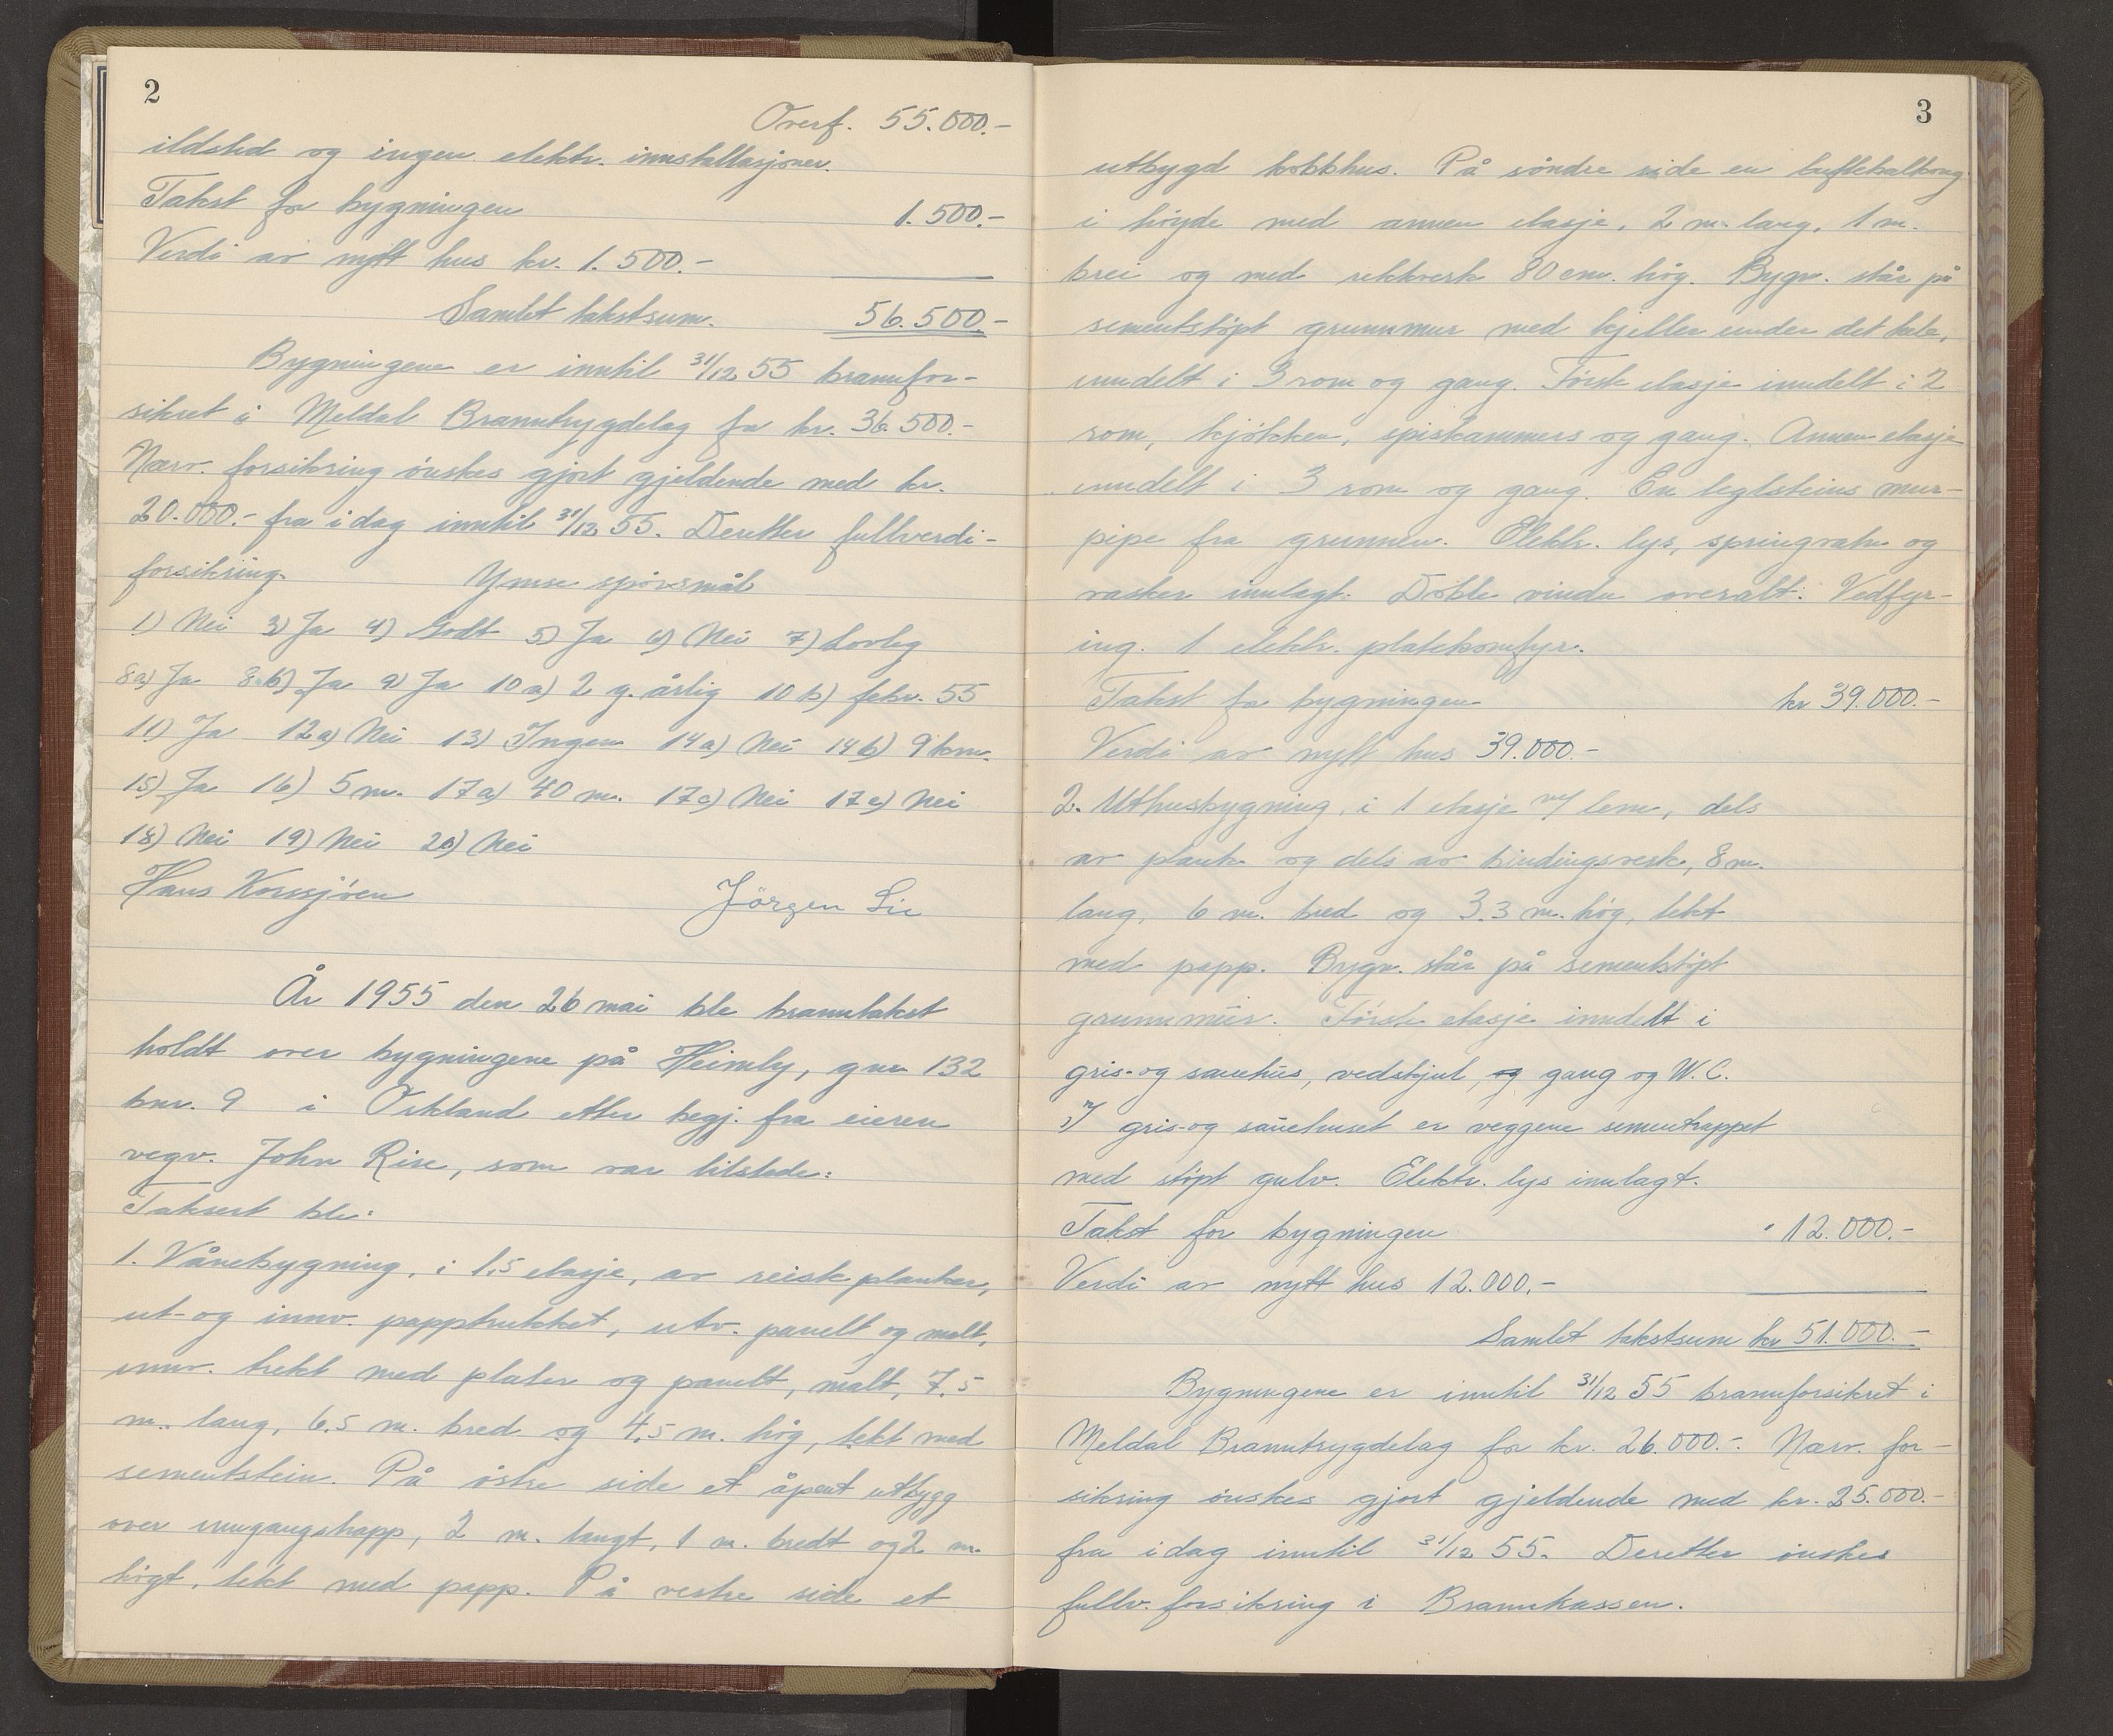 2
Overf. 55.000.-
ildsted og ingen elektr. innstallasjoner.
Takst for bygningen 1.500.-
Verdi av nytt hus kr. 1.500.-
Samlet takstsum. 56.500.-
Bygningene er inntil 31/12 55 brannfor-
sikret i Meldal Branntrygdelag for kr. 36.500.-
Nærv. forsikring ønskes gjort gjeldende med kr.
20.000.- fra i dag inntil 31/12 55. Deretter fullverdi-
forsikring. Ymse spörsmål
1) Nei 3) Ja 4) Godt 5) Ja 6) Nei 7) Lovleg
8a) Ja 8b) Ja 9) Ja 10a) 2 g. årlig 10b) febr. 55
11) Ja 12a) Nei 13) Ingen 14a) Nei 14b) 9 km.
15) Ja 16) 5 m. 17a) 40 m. 17c) Nei 17e) Nei
18) Nei 19) Nei 20) Nei
Hans Korsjöen Jörgen Lie
År 1955 den 26 mai ble branntakst
holdt over bygningene på Heimly, gnr 132
bnr. 9 i Orkland etter begj. fra eieren
vegv. John Rise, som var tilstede:
Taksert ble:
1. Vånebygning, i 1,5 etasje, av reiste planker,
ut- og innv. papptrukket, utv. panelt og malt,
innv. trekt med plater og panelt, malt, 7,5
m. lang, 6,5 m. bred og 4,5 m. høg, tekt med
sementstein. På östre side et åpent utbygg
over inngangstrapp, 2 m. langt, 1 m. bredt og 2 m.
högt, tekt med papp. På vestre side et
3
utbygd kobbhus. På söndre side en luftebalkong
i höyde med annen etasje, 2 m. lang, 1 m.
brei og med rekkverk 80 cm. høg. Bygn. står på
sementstöpt grunnmur med kjeller under det hele,
inndelt i 3 rom og gang. Förste etasje inndelt i 2
rom, kjökken, spiskammers og gang. Annen etasje
inndelt i 3 rom og gang. En teglsteins mur-
pipe fra grunnen. Elektr. lys, springvatn og
vasker innlagt. Doble vindu overalt. Vedfyr-
ing. 1 elektr. platekomfyr.
Takst for bygningen kr 39.000.-
Verdi av nytt hus 39.000.-
2. Uthusbygning, i 1 etasje m/ lem, dels
av plank og dels av bindingsverk, 8 m.
lang, 6 m. bred og 3.3 m. høg, tekt
med papp. Bygn. står på sementstöpt
grunnmur. Förste etasje inndelt i
gris- og sauehus, vedskjul, og gang og W.C.
I gris- og sauehuset er veggene sementrappet
med stöpt gulv. Elektr. lys innlagt.
Takst for bygningen " 12.000.-
Verdi av nytt hus 12.000.-
Samlet takstsum kr 51.000.-
Bygningene er inntil 31/12 55 brannforsikret i
Meldal Branntrygdelag for kr. 26.000.-. Nærv. for-
sikring önskes gjort gjeldende med kr. 25.000.-
fra i dag inntil 31/12 55. Deretter önskes
fullv. forsikring i Brannkassen.